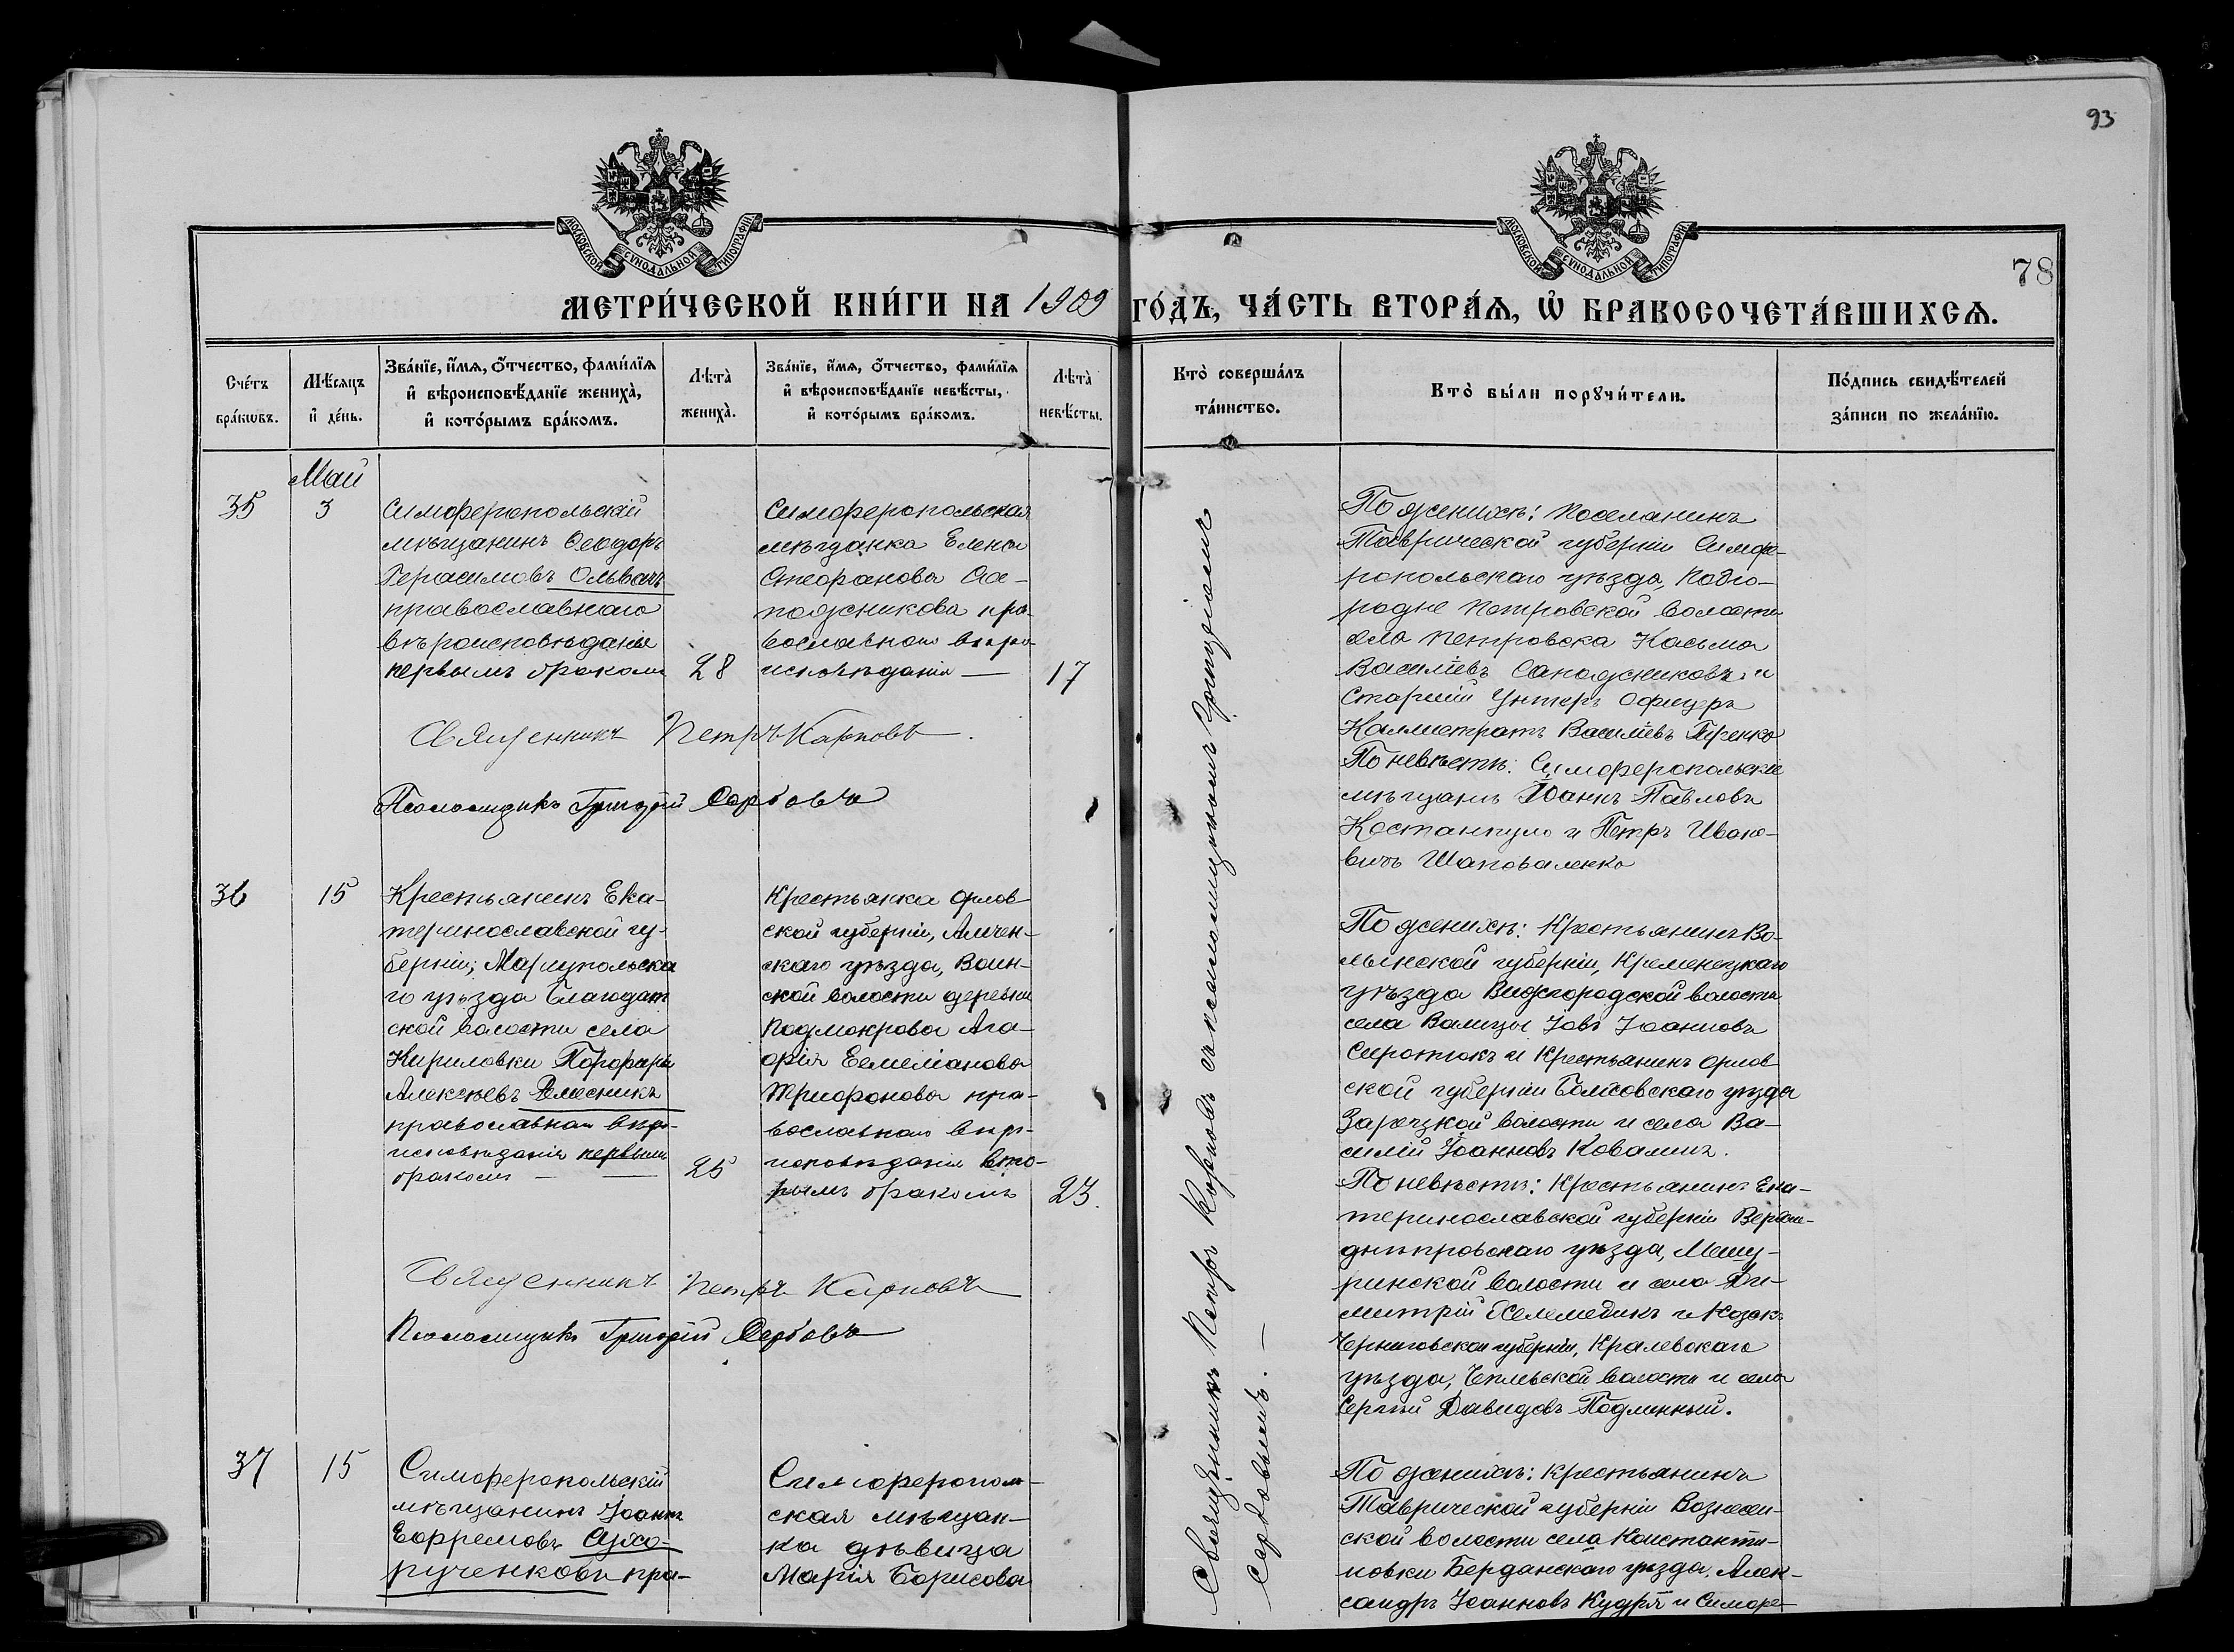 93
МОСКОВСКОЙ СѴНОДАЛЬНОЙ ТИПОГРАФІИ
МОСКОВСКОЙ СѴНОДАЛЬНОЙ ТИПОГРАФІИ
78
МЕТРИ́ЧЕСКОЙ КНИ́ГИ НА 1909 ГО́ДЪ, ЧА́СТЬ ВТОРА́Ѧ, Ѡ҆ БРАКОСОЧЕТА́ВШИХСѦ.
Сче́тъ бра́кѡвъ.
Мѣ́сѧцъ и҆ де́нь.
Зва́нїе, и҆́мѧ, ѻ҆́тчество, фами́лїѧ и҆ вѣроисповѣ́данїе жениха̀, и҆ кото́рымъ бра́комъ.
Лѣта̀ жениха̀.
Зва́нїе, и҆́мѧ, ѻ҆́тчество, фами́лїѧ и҆ вѣроисповѣ́данїе невѣ́сты, и҆ кото́рымъ бра́комъ.
Лѣта̀ невѣ́сты.
Кто̀ соверша́лъ та́инство.
Кто̀ бы́ли порꙋчи́тели.
По́дпись свидѣ́телей за́писи по жела́нїю.
Май
35
3
Симферопольскій
мѣщанинъ Ѳеодоръ
Герасимовъ Ольвачъ
православнаго
вѣроисповѣданія
первымъ бракомъ
28
Симферопольская
мѣщанка Елена
Стефанова Са-
пожникова пра-
вославнаго вѣро-
исповѣданія —
17
Священникъ Петръ Карповъ.
Псаломщикъ Григорій Сербовъ
По женихѣ: поселянинъ
Таврической губерніи Симфе-
ропольскаго уѣзда, Подго-
родне Петровской волости
села Петровска Касьма
Василіевъ Сапожниковъ и
Старшій Унтеръ Офицеръ
Каллистратъ Василіевъ
По невѣстѣ: Симферопольскіе
мѣщане Іоаннъ Павловъ
и Петръ Ивано-
вичъ Шаповаленко
36
15
Крестьянинъ Ека-
теринославской гу-
берніи, Маріупольска
го уѣзда Благодат
ской волости села
Кириловки Порфирій
Алексѣевъ
православнаго вѣро-
исповѣданія первымъ
бракомъ —
25
Крестьянка Орлов
ской губерніи,
скаго уѣзда, Воин-
ской волости деревни
Подмокрова Ага-
фія Емеліанова
Трифонова пра-
вославнаго вѣро-
исповѣданія вто-
рымъ бракомъ
23.
Священникъ Петръ Карповъ
Псаломщикъ Григорій Сербовъ
По женихѣ: Крестьянинъ Во-
лынской губерніи, Кременецкаго
уѣзда Вижгородской волости
села Іовъ Іоанновъ
Сиротюкъ и Крестьянинъ Орлов
ской губерніи Болховскаго уѣзда
Зарѣцкой волости и села Ва-
силій Іоанновъ Ковалинъ.
По невѣстѣ: Крестьянинъ Ека-
теринославской губерніи Верхне-
днѣпровскаго уѣзда, Мишу-
ринской волости и села Ди-
митрій и Козакъ
Черниговской губерніи, Кралевскаго
уѣзда, волости и села
Сергѣй Давидовъ Подлинный.
Священникъ Петръ Карповъ съ псаломщикомъ Григоріемъ
Сербовымъ. —
37
15
Симферопольскій
мѣщанинъ Іоаннъ
Ефремовъ Сухо-
рученковъ пра-
Симферополь-
ская мѣщан-
ка дѣвица
Марія Борисова
По женихѣ: крестьянинъ
Таврической губерніи Вознесен-
ской волости села Константи-
новки Берданскаго уѣзда, Алек-
сандръ Іоанновъ Кудря и Симфе-